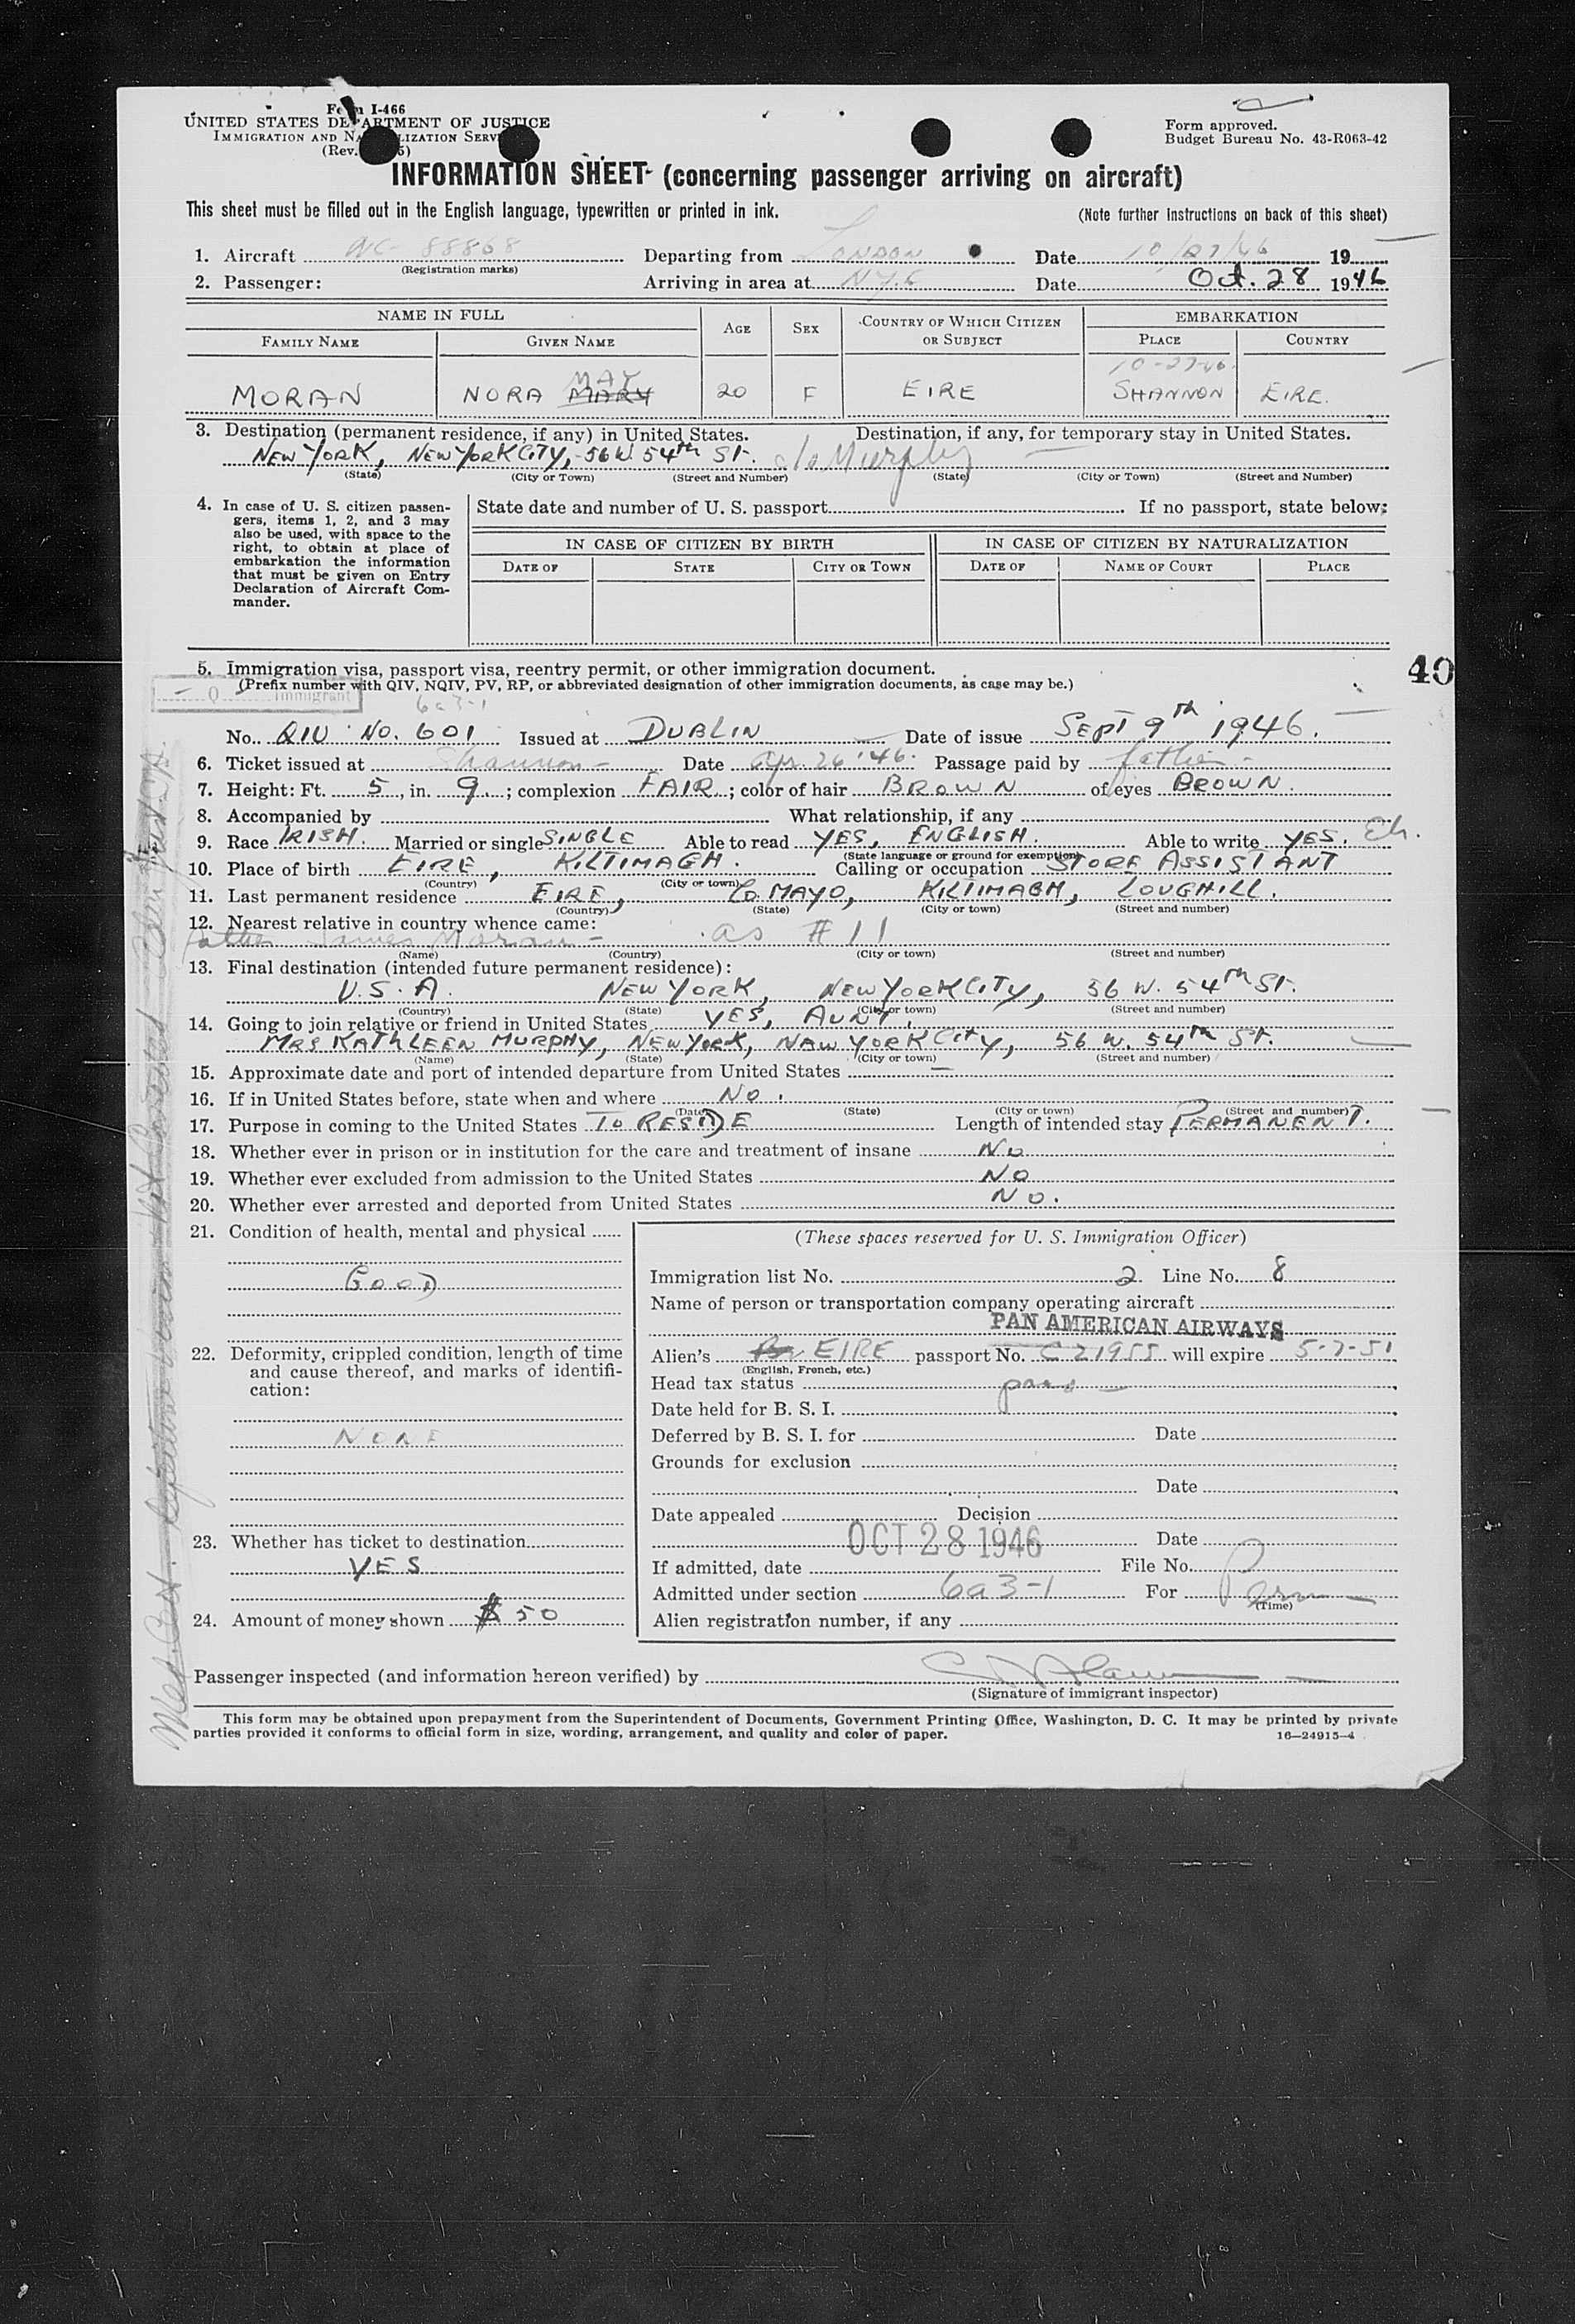 Form I-466
UNITED STATES DEPARTMENT OF JUSTICE
IMMIGRATION AND NATURALIZATION SERV
(Rev. 5)
Form approved.
Budget Bureau No. 43-R063-42
INFORMATION SHEET (concerning passenger arriving on aircraft)
This sheet must be filled out in the English language, typewritten or printed in ink. (Note further instructions on back of this sheet)
1. Aircraft NC-88868 Departing from LONDON Date 10/27/46 19
(Registration marks)
2. Passenger: Arriving in area at N.Y.C Date Oct. 28 1946
NAME IN FULL AGE SEX COUNTRY OF WHICH CITIZEN OR SUBJECT EMBARKATION
FAMILY NAME GIVEN NAME PLACE COUNTRY
MAY 10-27-46
MORAN NORA MARY 20 F EIRE SHANNON EIRE.
3. Destination (permanent residence, if any) in United States. Destination, if any, for temporary stay in United States.
NEW YORK, NEW YORK CITY, 56 W. 54th St. c/o Murphy
(State) (City or Town) (Street and Number) (State) (City or Town) (Street and Number)
4. In case of U. S. citizen passen-
gers, items 1, 2, and 3 may
also be used, with space to the
right, to obtain at place of
embarkation the information
that must be given on Entry
Declaration of Aircraft Com-
mander.
State date and number of U. S. passport If no passport, state below:
IN CASE OF CITIZEN BY BIRTH IN CASE OF CITIZEN BY NATURALIZATION
DATE OF STATE CITY OR TOWN DATE OF NAME OF COURT PLACE
40
5. Immigration visa, passport visa, reentry permit, or other immigration document.
(Prefix number with QIV, NQIV, PV, RP, or abbreviated designation of other immigration documents, as case may be.)
Q Immigrant
6a3-1
No. QIV No. 601 Issued at DUBLIN Date of issue SEPT 9th 1946.
6. Ticket issued at Shannon - Date Apr. 26 '46. Passage paid by father -
7. Height: Ft. 5, in. 9.; complexion FAIR.; color of hair BROWN of eyes BROWN.
8. Accompanied by What relationship, if any
9. Race IRISH. Married or single SINGLE Able to read YES, ENGLISH. Able to write YES.
(State language or ground for exemption)
10. Place of birth EIRE, KILTIMAGH. Calling or occupation STORE ASSISTANT
(Country) (City or town)
11. Last permanent residence EIRE, Co. MAYO, KILTIMAGH, LOUGHILL.
(Country) (State) (City or town) (Street and number)
12. Nearest relative in country whence came:
Father James Moran - as # 11
(Name) (Country) (City or town) (Street and number)
13. Final destination (intended future permanent residence):
U.S.A. NEW YORK, NEW YORK CITY, 56 W. 54th St.
(Country) (State) (City or town) (Street and number)
14. Going to join relative or friend in United States YES, AUNT,
MRS KATHLEEN MURPHY, NEW YORK, NAW YORK CITY, 56 W. 54th St.
(Name) (State) (City or town) (Street and number)
15. Approximate date and port of intended departure from United States -
16. If in United States before, state when and where NO.
(Date) (State) (City or town) (Street and number)
17. Purpose in coming to the United States TO RESIDE Length of intended stay PERMANENT.
18. Whether ever in prison or in institution for the care and treatment of insane No
19. Whether ever excluded from admission to the United States NO
20. Whether ever arrested and deported from United States NO.
21. Condition of health, mental and physical
GOOD
22. Deformity, crippled condition, length of time
and cause thereof, and marks of identifi-
cation:
NONE
23. Whether has ticket to destination
YES
24. Amount of money shown $ 50
(These spaces reserved for U. S. Immigration Officer)
Immigration list No. 2 Line No. 8
Name of person or transportation company operating aircraft
PAN AMERICAN AIRWAYS
Alien's EIRE passport No. C 21955 will expire 5-7-51
(English, French, etc.)
Head tax status paid
Date held for B. S. I.
Deferred by B. S. I. for Date
Grounds for exclusion
Date
Date appealed Decision
OCT 28 1946 Date
If admitted, date File No.
Admitted under section 6a3-1 For Perm
(Time)
Alien registration number, if any
Passenger inspected (and information hereon verified) by
(Signature of immigrant inspector)
This form may be obtained upon prepayment from the Superintendent of Documents, Government Printing Office, Washington, D. C. It may be printed by private
parties provided it conforms to official form in size, wording, arrangement, and quality and color of paper. 16—24915-4